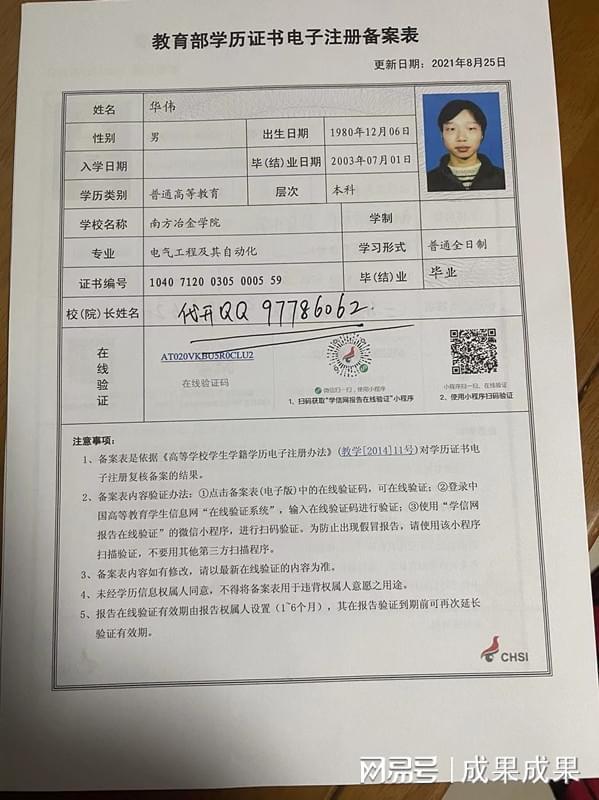 教育部学历证书电子注册备案表
更新日期：2021年8月25日
姓名 华伟
性别 男 出生日期 1980年12月06日
入学日期 毕(结)业日期 2003年07月01日
学历类别 普通高等教育 层次 本科
学校名称 南方冶金学院 学制
专业 电气工程及其自动化 学习形式 普通全日制
证书编号 1040 7120 0305 0005 59 毕(结)业 毕业
校(院)长姓名 代开QQ 97786062.
在线验证
AT020VKBU5R0CLU2
在线验证码
微信扫一扫，使用小程序
1、扫码获取“学信网报告在线验证”小程序
小程序扫一扫，在线验证
2、使用小程序扫码验证
注意事项：
1、备案表是依据《高等学校学生学籍学历电子注册办法》(教学[2014]11号)对学历证书电
子注册复核备案的结果。
2、备案表内容验证办法：①点击备案表(电子版)中的在线验证码，可在线验证；②登录中
国高等教育学生信息网“在线验证系统”，输入在线验证码进行验证；③使用“学信网
报告在线验证”的微信小程序，进行扫码验证。为防止出现假冒报告，请使用该小程序
扫描验证，不要用其他第三方扫描程序。
3、备案表内容如有修改，请以最新在线验证的内容为准。
4、未经学历信息权属人同意，不得将备案表用于违背权属人意愿之用途。
5、报告在线验证有效期由报告权属人设置（1~6个月），其在报告验证到期前可再次延长
验证有效期。
CHSI
网易号 | 成果成果